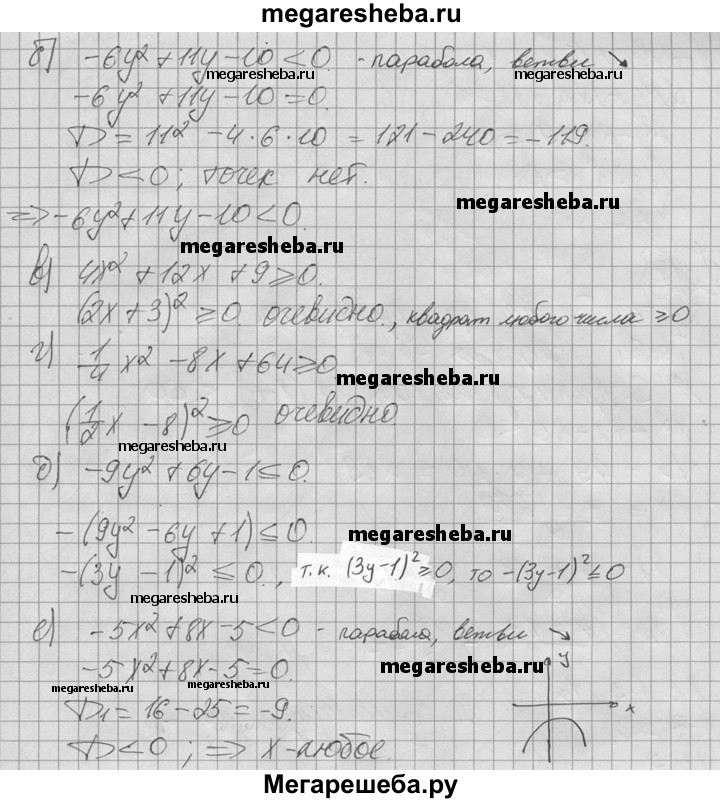 megaresheba.ru
б) -6y² + 11y - 10 < 0. - парабола, ветви ↘
megaresheba.ru megaresheba.ru
-6y² + 11y - 10 = 0.
D = 11² - 4·6·10 = 121 - 240 = -119.
D < 0; точек нет.
megaresheba.ru
=> -6y² + 11y - 10 < 0.
megaresheba.ru
в) 4x² + 12x + 9 ≥ 0.
(2x + 3)² ≥ 0. очевидно., квадрат любого числа ≥ 0
г) 1/4 x² - 8x + 64 ≥ 0
megaresheba.ru
(1/2 x - 8)² ≥ 0 очевидно
megaresheba.ru
д) -9y² + 6y - 1 ≤ 0.
-(9y² - 6y + 1) ≤ 0.
megaresheba.ru
-(3y - 1)² ≤ 0., т.к. (3y-1)² ≥ 0, то -(3y-1)² ≤ 0
megaresheba.ru
е) -5x² + 8x - 5 < 0 - парабола, ветви ↘
megaresheba.ru
-5x² + 8x - 5 = 0.
y
megaresheba.ru megaresheba.ru
D₁ = 16 - 25 = -9.
x
D < 0; => x - любое.
Мегарешеба.ру